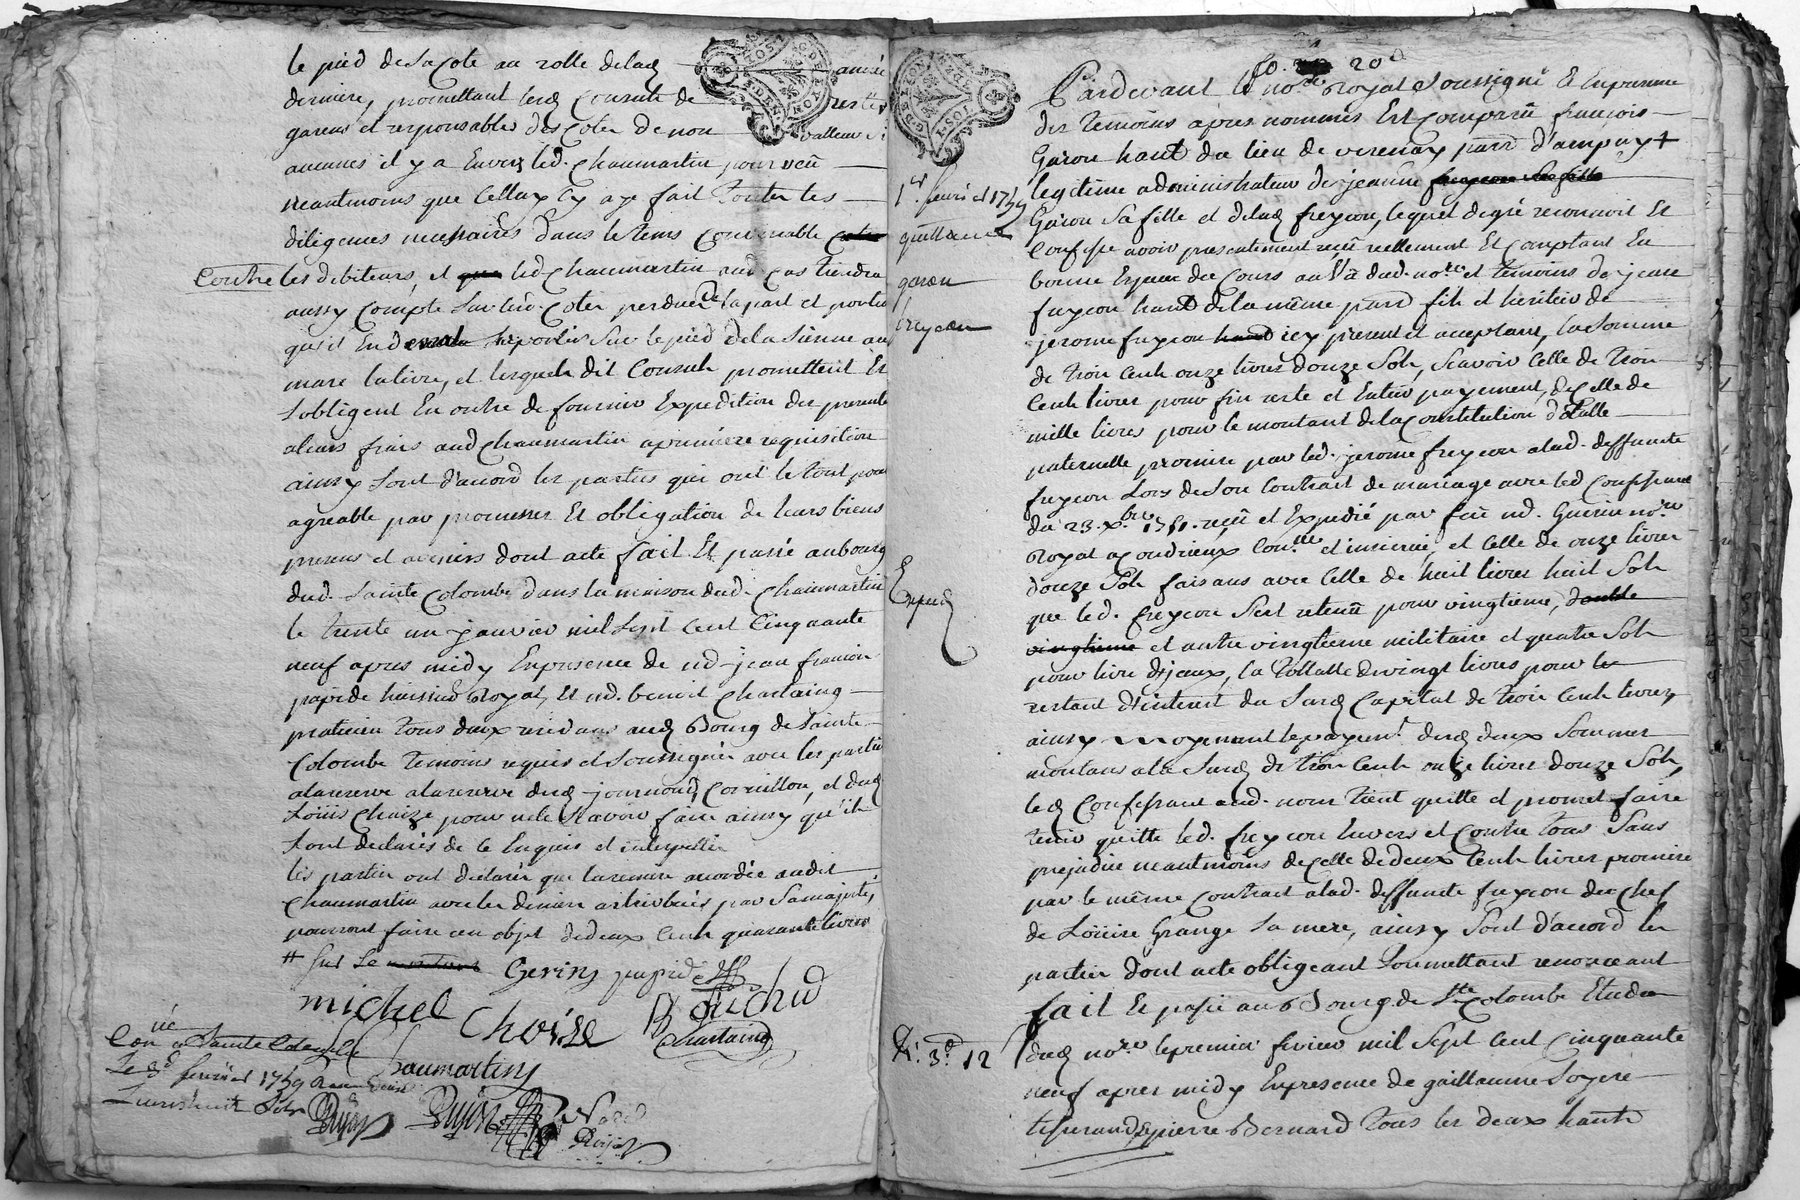 le pied de sa Cote au rolle delad année
derniere, promettant lesd Consuls de rester
garens et responsables des Cotes de non valleurs si
aucunes il y a Envers led. Chaumartin pourveû
neantmoins que Celluy Cy aye fait Toutes les
diligences necessaires dans le tems Convenable
Contre les debiteurs, et led Chaumartin aud Cas tiendra
aussy Compte sur led. Cotes perdues la part et portion
qu'il En doit suporter Sur le pied de la Sienne au
marc la livre, et lesquels dit Consuls promettent Et
s'obligent En outre de fournir Expedition des presentes
a leurs frais aud Chaumartin a premiere requisition
ainsy sont d'accord les parties qui ont le tout pour
agreable par promesses Et obligation de leurs biens
presens et avenirs dont acte fait Et passé au bourg
dud. Sainte Colombe dans la maison dud. Chaumartin
le trente un janvier mil sept Cent Cinquante
neuf apres midy En presence de md jean francois
papi de huissier Royal, Et md. benoit Chastaing
praticien tous deux residans aud Bourg de Sainte
Colombe Temoins requis et soussignés avec les parties
a la reserve a la reserve dud journoud, Cornillon, et dud
Loüis Choize pour ne le sçavoir faire ainsy qu'ils
sont declarés de ce Enquis et interpellés
les parties ont declaré que la remise accordée audit
Chaumartin avec les deniers attribués par Sa majesté,
pourront faire un objet de deux Cent quarante livres
# sur le Gerin papi de
michel Choize Bouchud
Chastaing
Con né a Sainte Colombe
Chaumartin
Le 3e fevrier 1759
Dujon Dujon
fo. 20
Pardevant le no.re Royal Soussigné Et En presence
des Temoins apres nommés Est Comparû françois
Garon hant du lieu de verenay parr d'ampuy +
legitime administrateur de jeanne freycon sa fille
1er fevrier 1759
quittance
garon
freycon
Garon sa fille et delad freycon, lequel de gré reconnoit Et
Confesse avoir presentement reçû reellement Et Comptant En
bonne Espece du Cours au vû dud. no.re et temoins de jean
freycon hant de la même parr fils et heritier de
jerome freycon hant icy present et acceptant, la somme
de trois Cents onze livres douze Sols, sçavoir Celle de trois
Cents livres pour fin reste et Entier payement, de Celle de
mille livres pour le montant de la Constitution dotalle
paternelle promise par led. jerome freycon a lad. deffunte
freycon Lors de son Contrat de mariage avec led Confessant
du 23. Xbre 1751. reçû et Expedié par feu md. Guerin no.re
Royal a Condrieux Con.llé et insinué, et Celle de onze livres
Exped
douze Sols faisans avec Celle de huit livres huit Sols
que led. freycon s'est retenû pour vingtieme, double
vingtieme et autre vingtieme militaire et quatre Sols
pour livre d'jceux, la tottalle de vingt livres pour les
restant d'interest du susd Capital de trois Cents livres,
ainsy moyenant le payem.t desd deux Sommes
montans a la susd de trois Cents onze livres douze Sols,
led Confessant aud. nom tient quitte et promet faire
tenir quitte led. freycon Envers et Contre tous Sans
prejudice neantmoins de Celle de deux Cents livres promise
par le même Contrat a lad. deffunte freycon du Chef
de Loüise Grange sa mere, ainsy sont d'accord les
parties dont acte obligeant soumettant renonceant
fait Et passé au Bourg de S.te Colombe Etude
R. 3e 12 s
dud no.re le premier fevrier mil Sept Cent Cinquante
neuf apres midy En presence de guillaume Soyere
tisserand, & pierre Bernard tous les deux hants